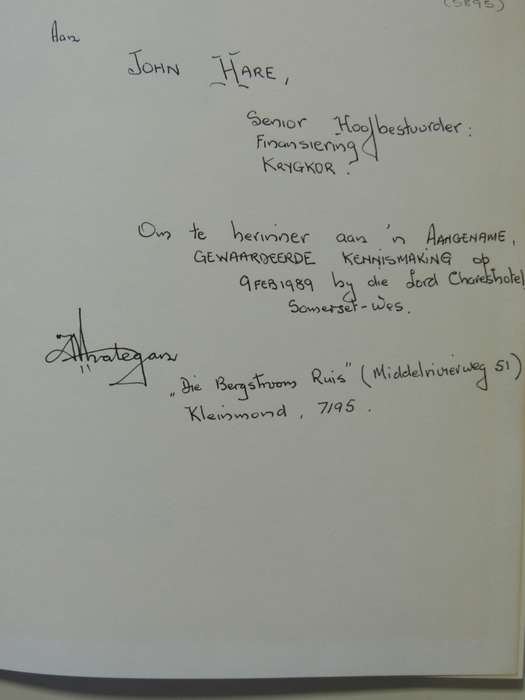 (5895)
Aan
JOHN HARE,
Senior Hoofbestuurder:
Finansiering
KRYGKOR.
Om te herinner aan 'n AANGENAME,
GEWAARDEERDE KENNISMAKING op
9 FEB 1989 by die Lord Chareshotel
Somerset-Wes.
„Die Bergstroom Ruis" (Middelrivierweg 51)
Kleinmond, 7195.